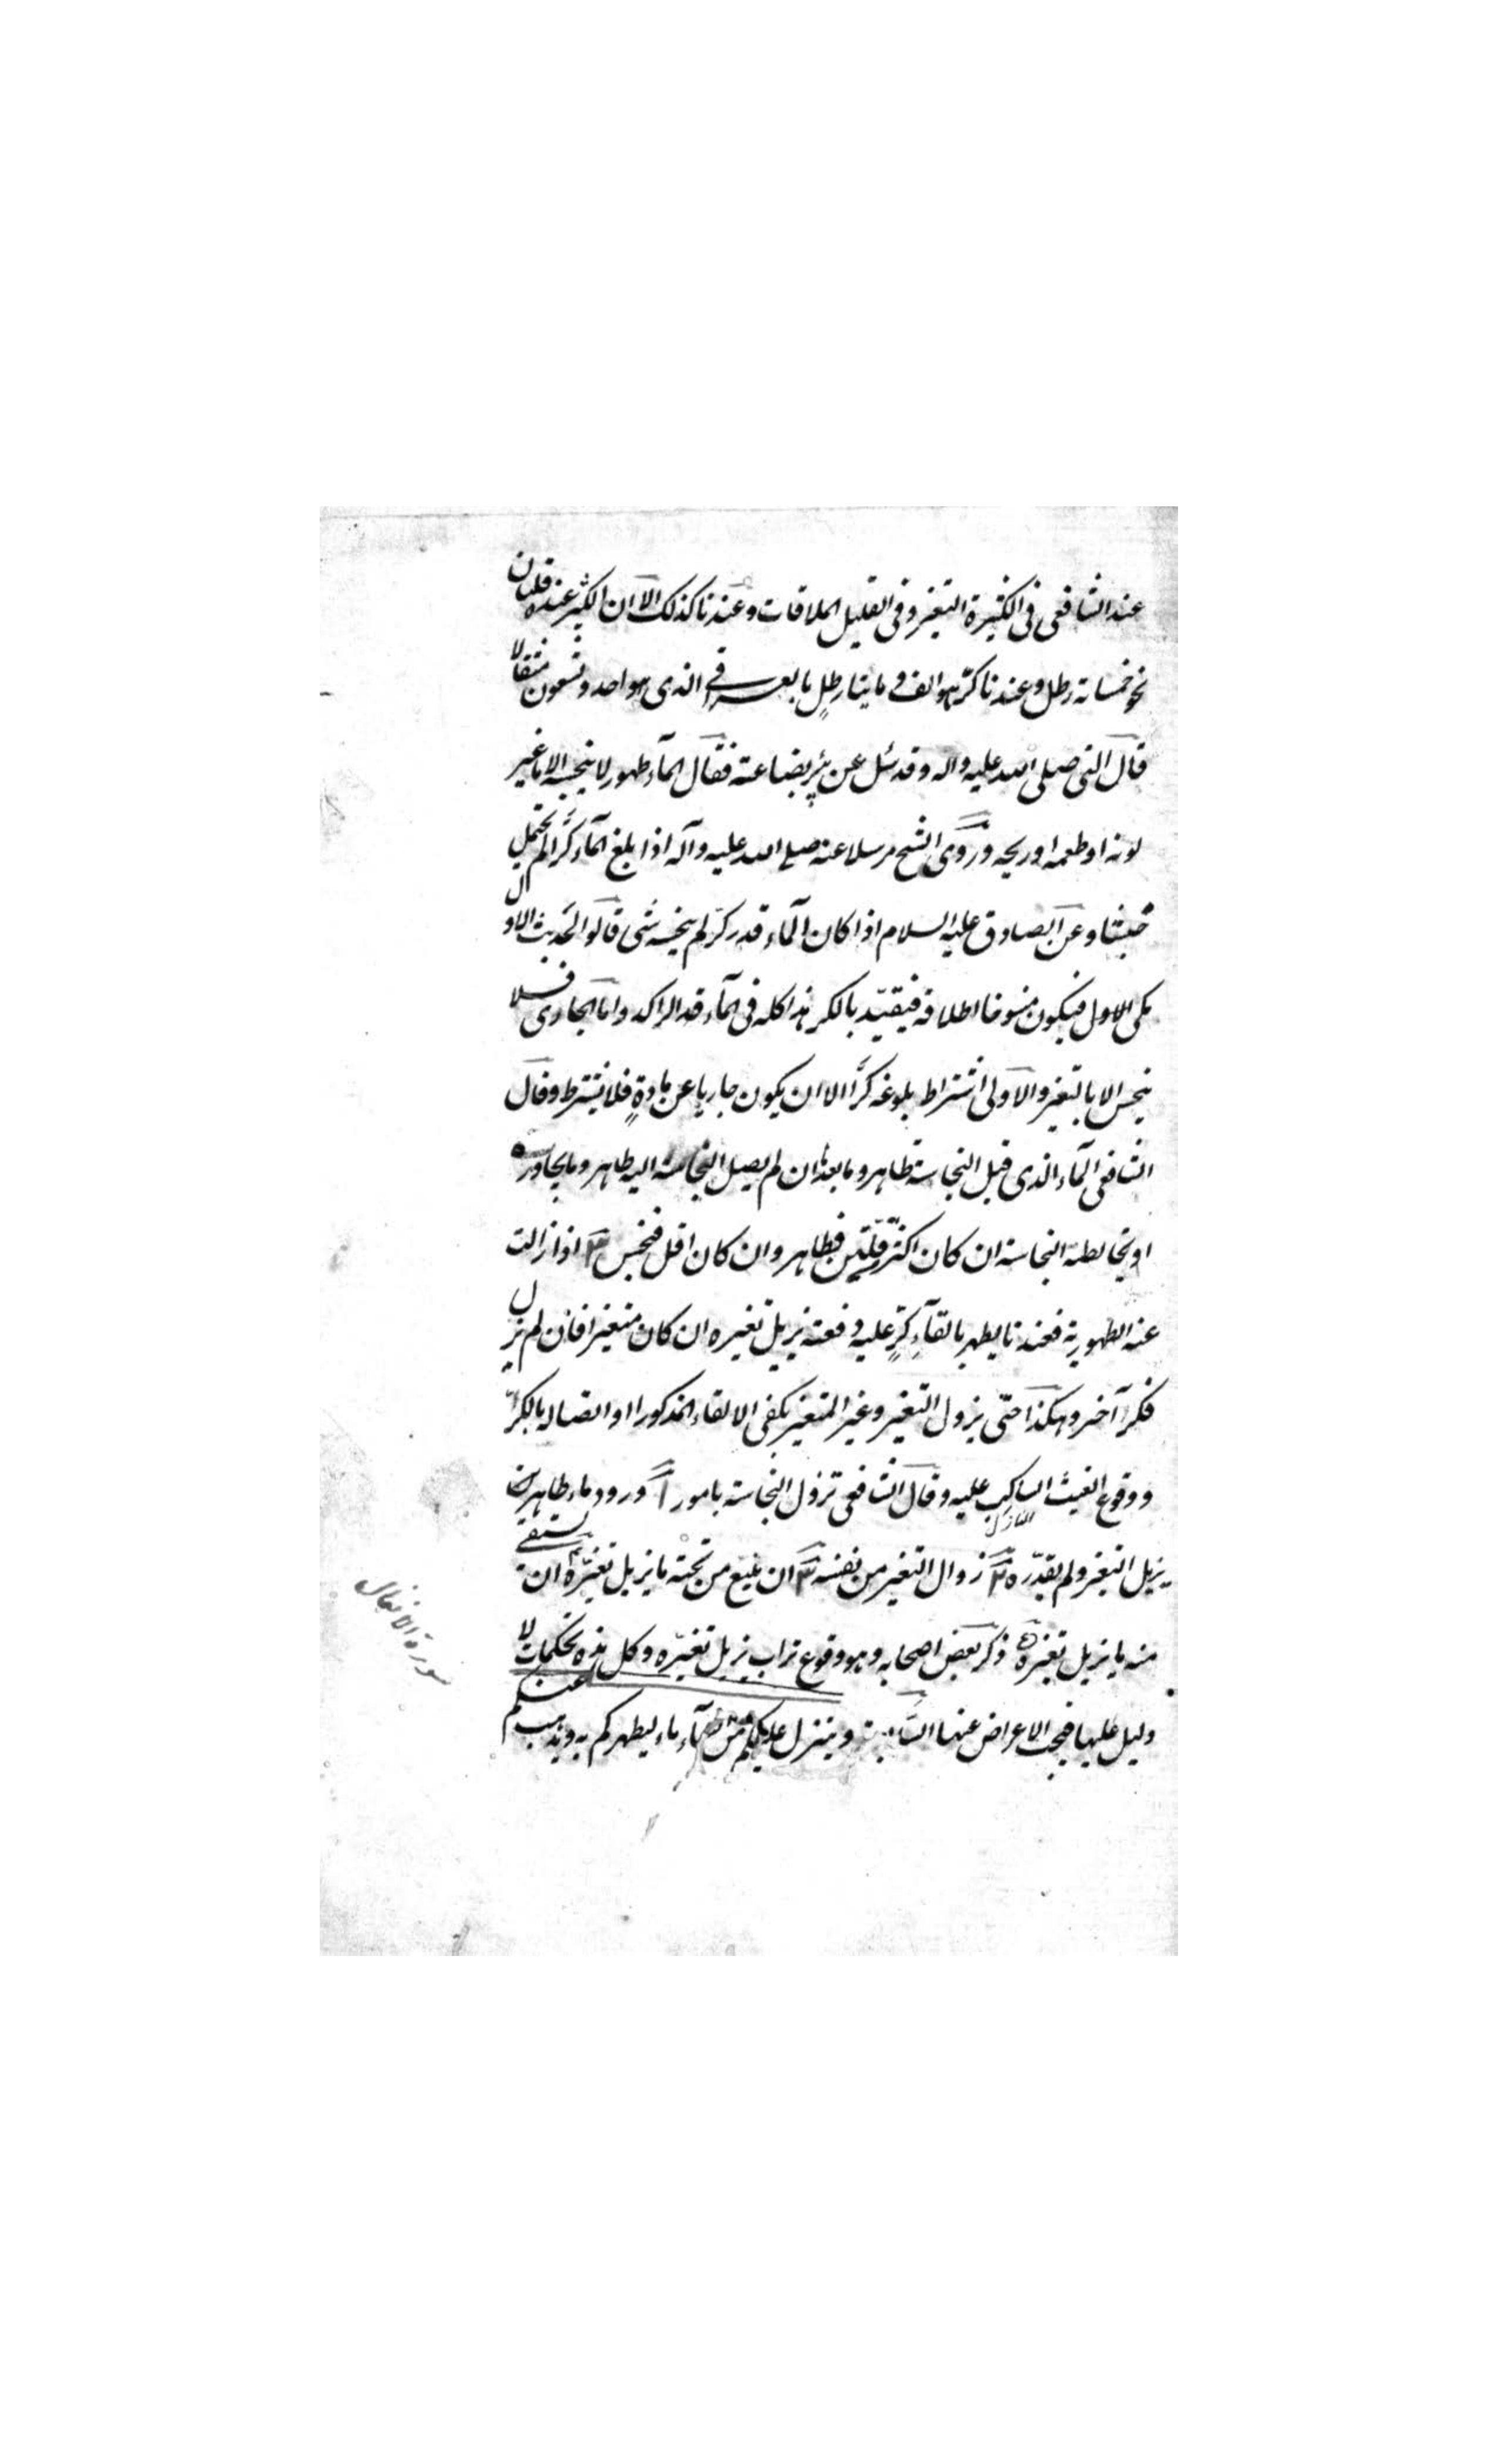 عند الشافعی فی الکثیرة التغیر و فی القلیل الملاقات و عندنا کذلک الا ان الکثیر عنده قلتان
نحو خمسمائة رطل و عندنا کرّ هو الف و مایتا رطلٍ بالعراقی الذی هو احد و تسعون مثقالا
قال النبی صلی الله علیه و اله و قد سئل عن بئر بضاعة فقال المآء طهور لا ینجسه الا ما غیر
لونه او طعمه او ریحه و روی الشیخ مرسلا عنه صلی الله علیه و آله اذا بلغ المآء کرًّا لم یحتمل
خبیثا و عن الصادق علیه السلام اذا کان المآء قدر کرّ لم ینجسه شی قالوا الحدیث الاول
مکی الاول فیکون منسوخا اطلاقه فیقیّد بالکر هذا کله فی المآء الراکد و اما الجاری فلا
ینجس الا بالتغیر و الاولی اشتراط بلوغه کرًّا الا ان یکون جاریا عن مادةٍ فلا یشترط و قال
الشافعی المآء الذی قبل النجاسة طاهر و ما بعدها ان لم یصل النجاسة الیه طاهر و ما یجاوره
او تخالطه النجاسة ان کان اکثر قلّتین فطاهر و ان کان اقل فنجس ۳ اذا زالت
عنه الطهوریة فعندنا یطهر بالقآءِ کرٍّ علیه دفعة یزیل تغیره ان کان متغیرا فان لم یزل
فکرّ آخر و هکذا حتّی یزول التغیر و غیر المتغیر یکفی الالقاء المذکور او اتصاله بالکرّ
و وقوع الغیث الساکب علیه و قال الشافعی تزول النجاسة بامور ۱ ورود ماء طاهر
النازل
یزیل التغیر و لم یقدّره ۲ زوال التغیر من نفسه ۳ ان ینبع من تحته ما یزیل تغیّره ۴ ان یستقی
منه ما یزیل تغیره ۵ ذکر بعض اصحابه و هو وقوع تراب یزیل تغیّره و کل هذه تحکمات لا
دلیل علیها فیجب الاعراض عنها و ینزل علیکم من السمآء ماء لیطهرکم به و یذهب عنکم
سورة الانفال